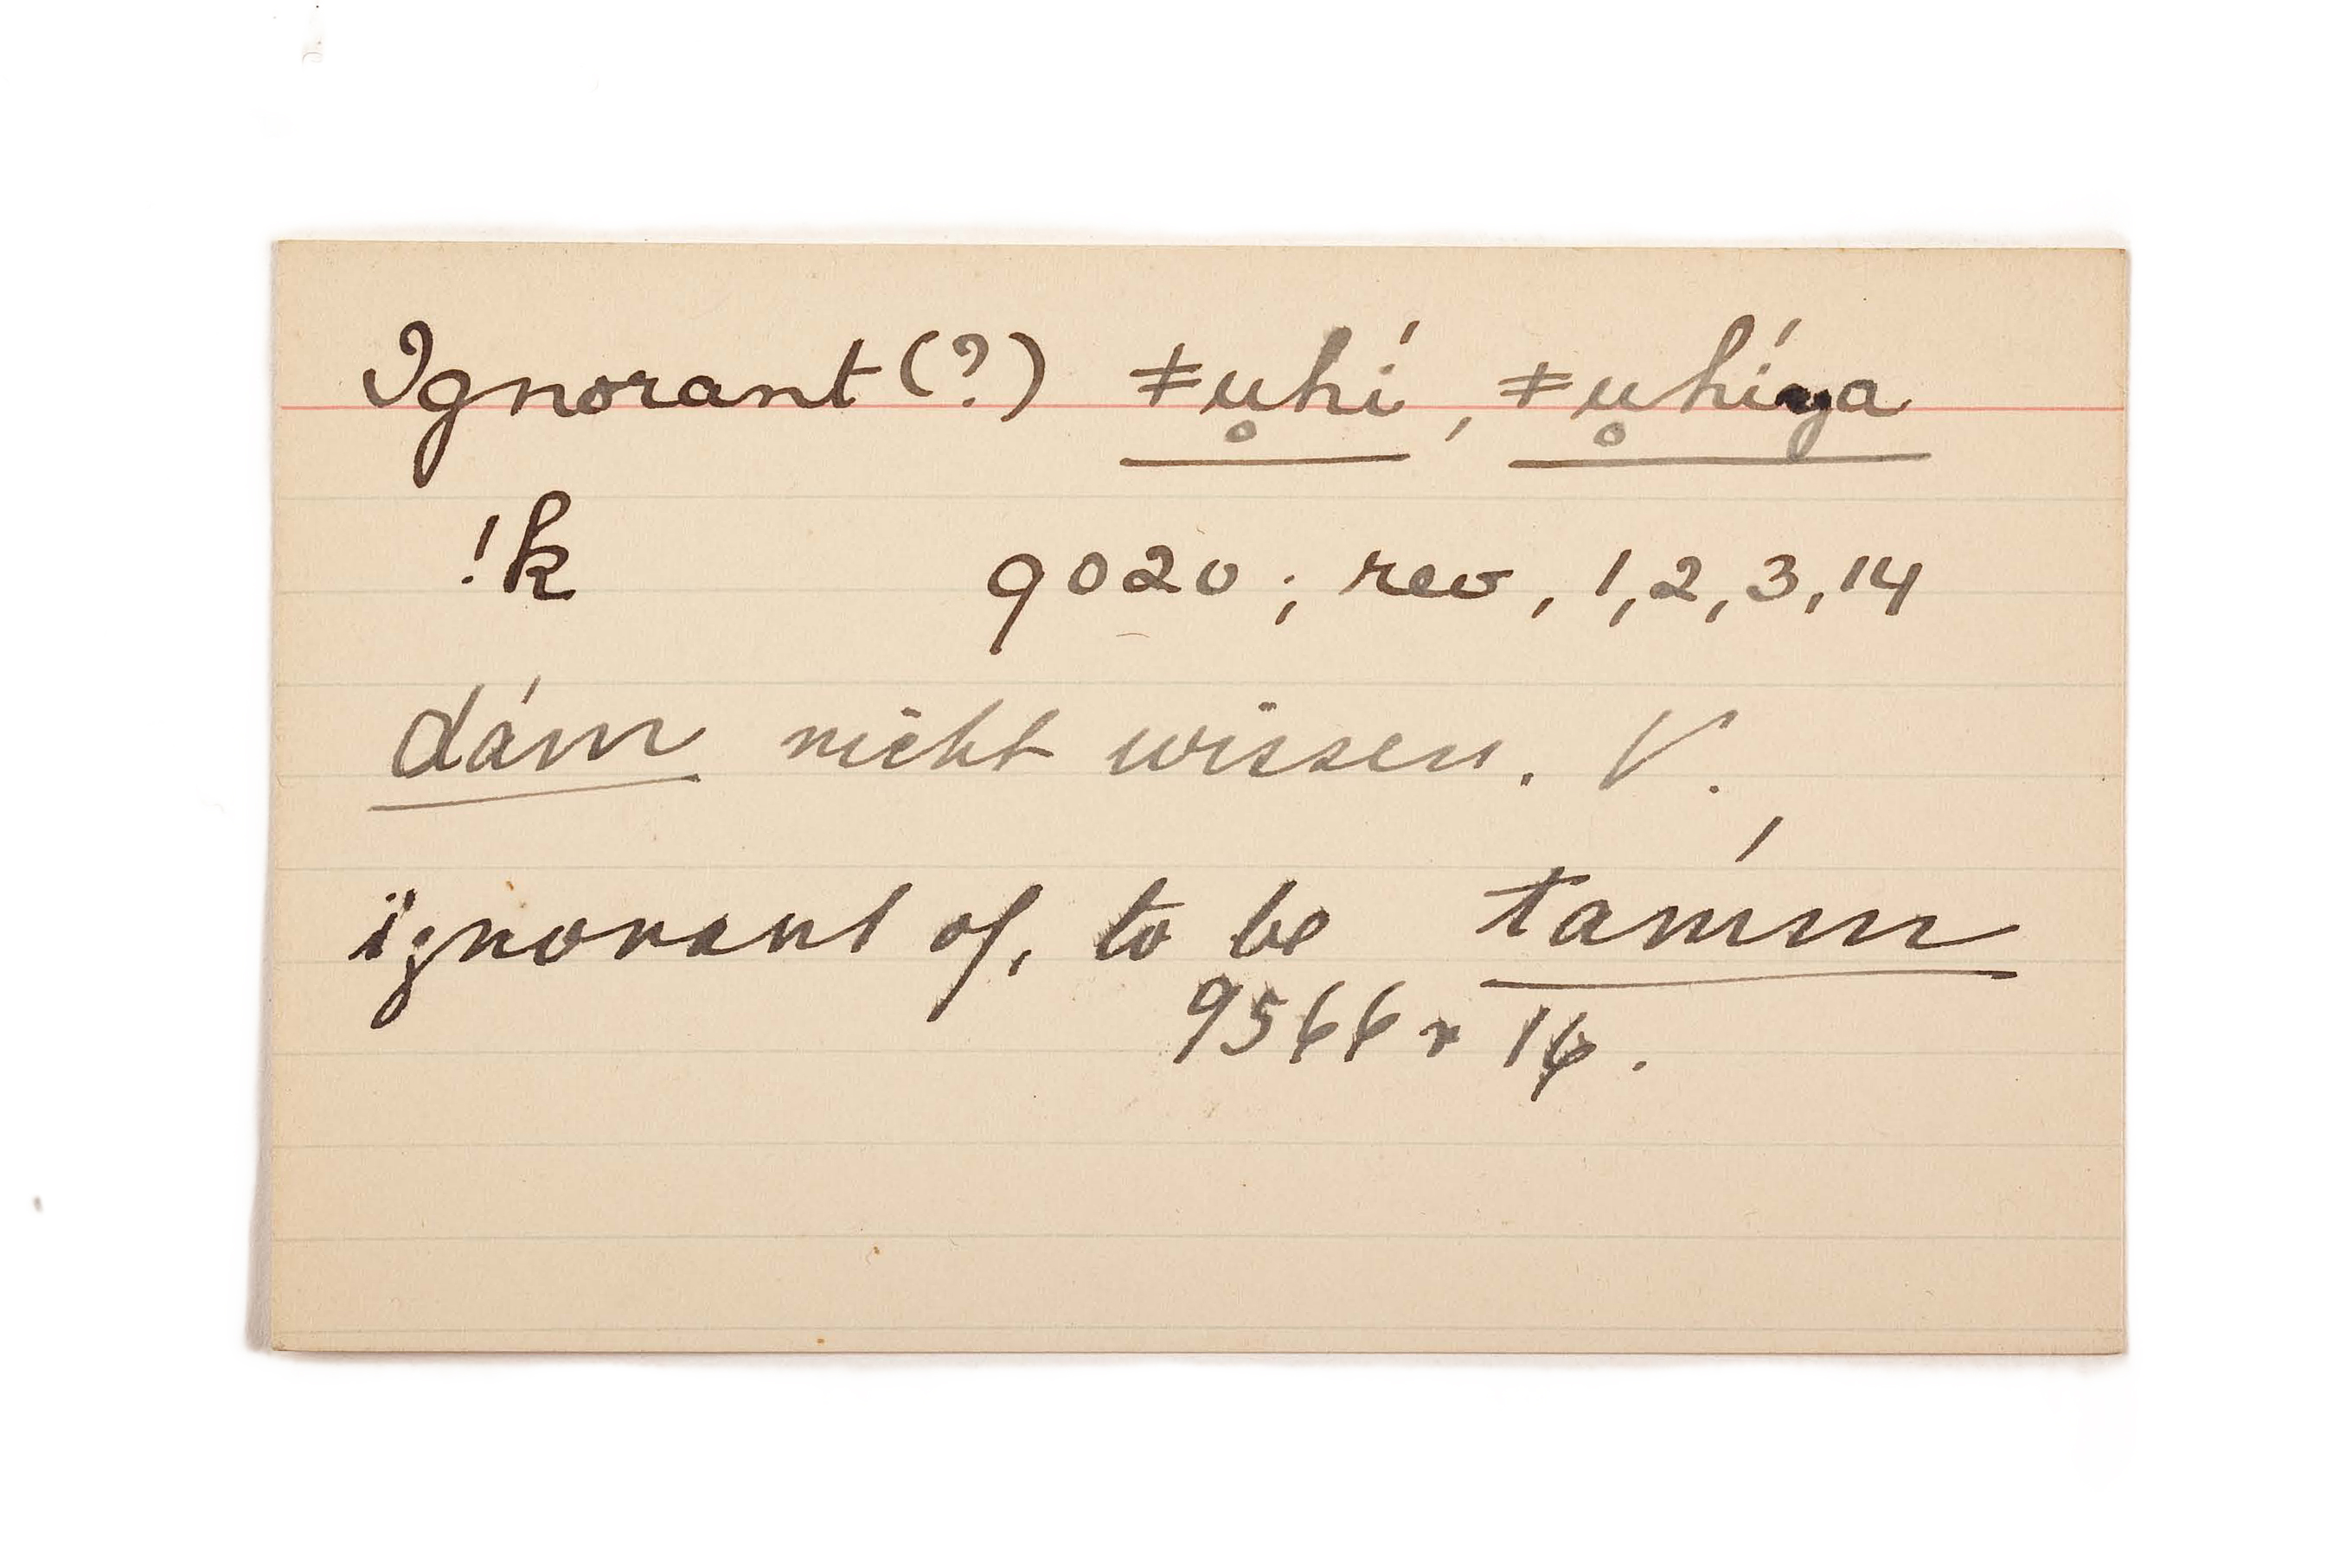 Ignorant (?) ǂu̥hí, ǂu̥híya
!k 9020; rev, 1, 2, 3, 14
dám nicht wissen. V.
ignorant of, to be támm
9566 r 16.